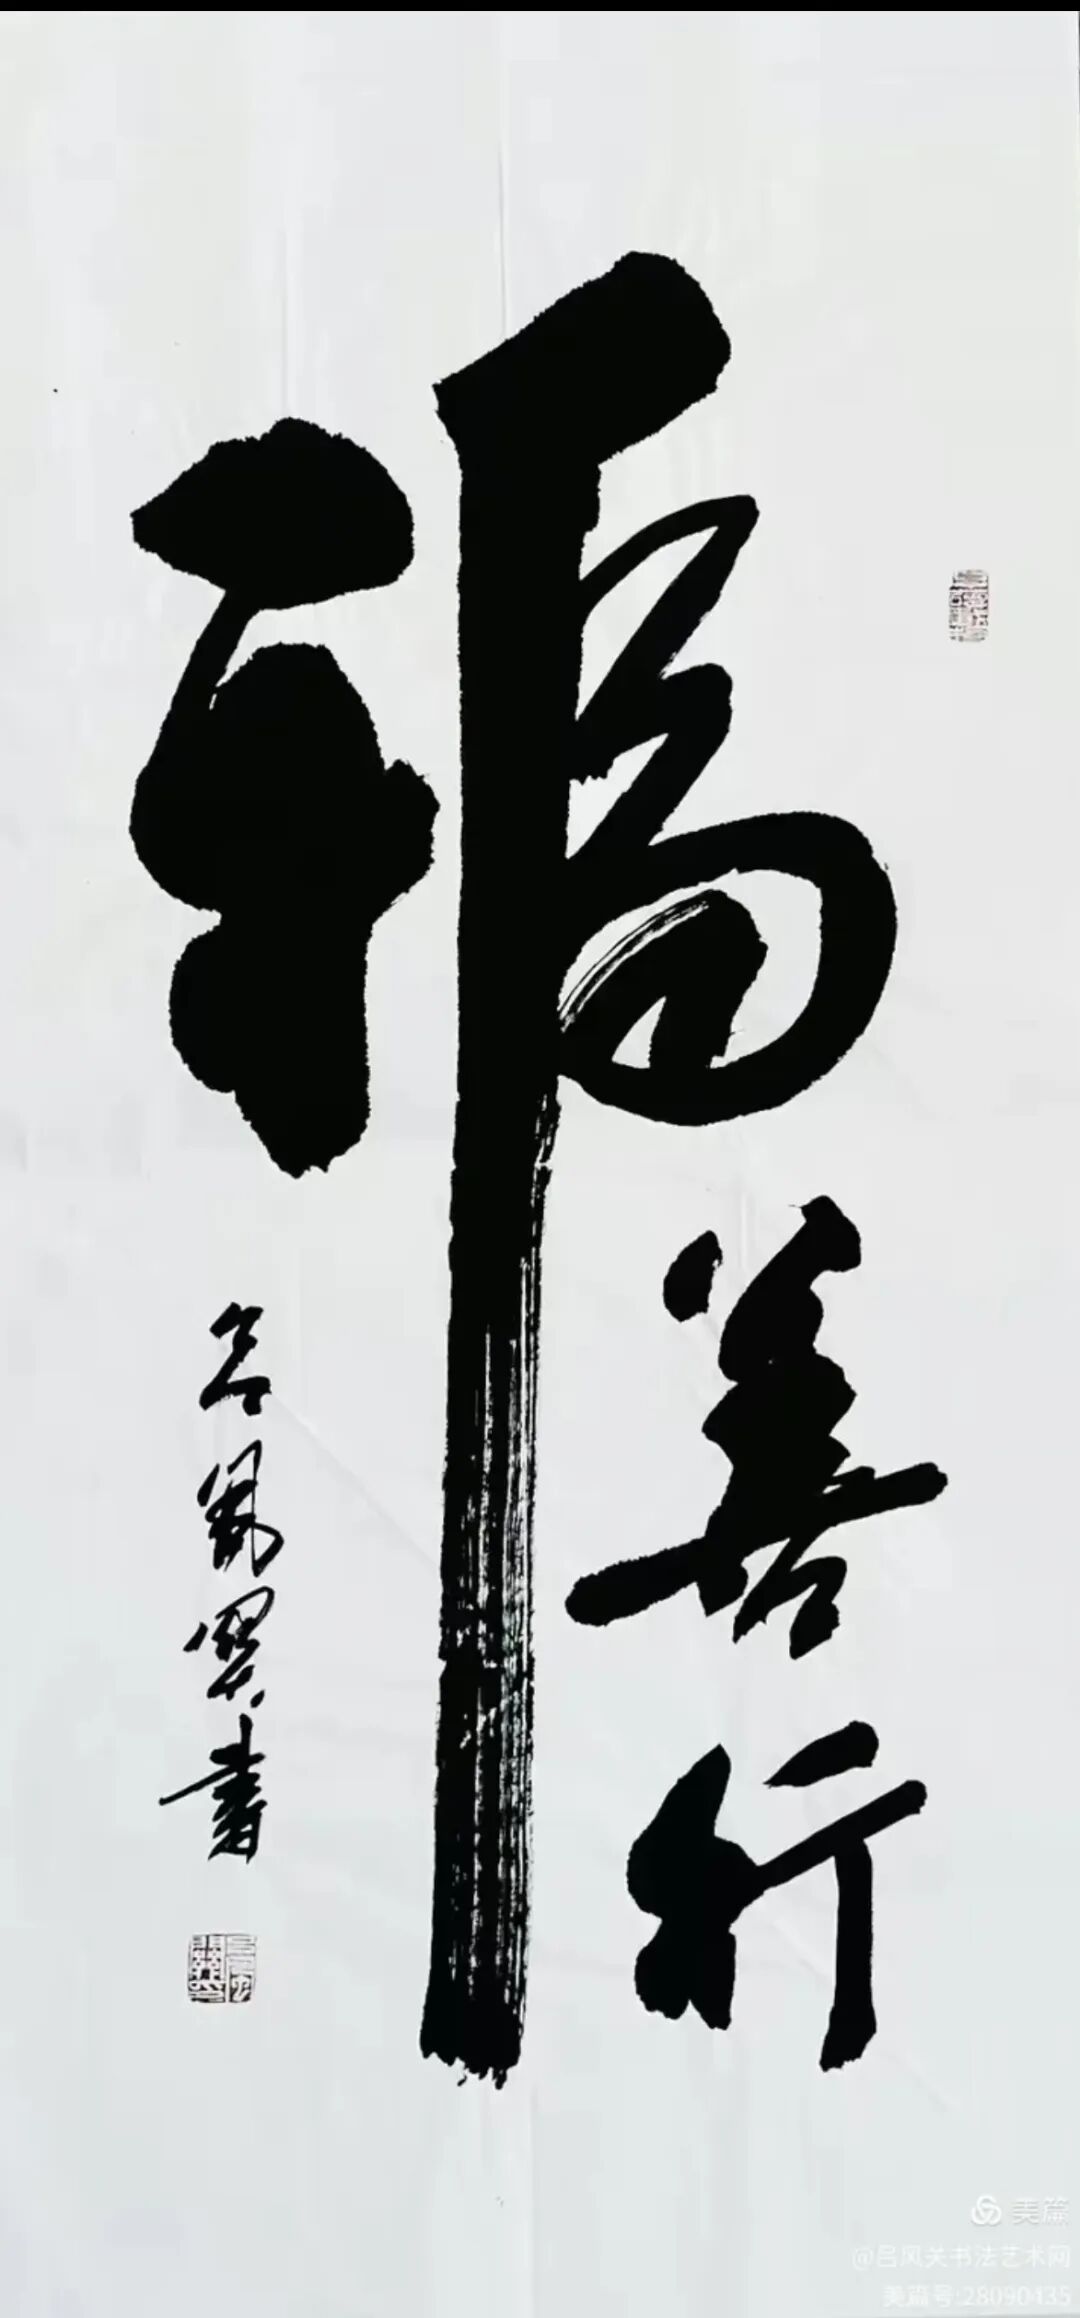 善行
吕鳳關書
美篇
@吕凤关书法艺术网
美篇号:28090435